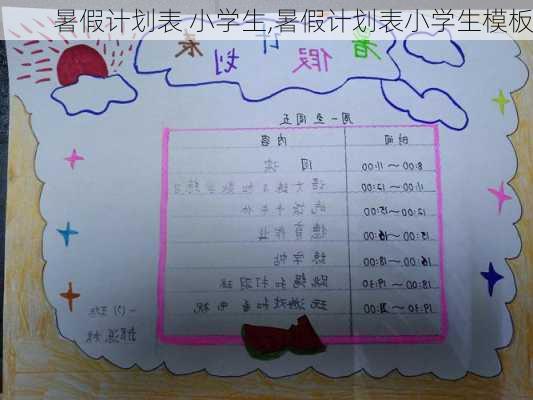 暑假计划表 小学生,暑假计划表小学生模板
暑假计划表
周一至周五
时间 内容
8:00~11:00 阅读
11:00~12:00 语文练习和数学练习
12:00~15:00 吃饭午休
15:00~16:00 德育作业
16:00~18:00 练字帖
18:00~19:30 跳绳和打羽球
19:30~21:00 玩游戏和看电视